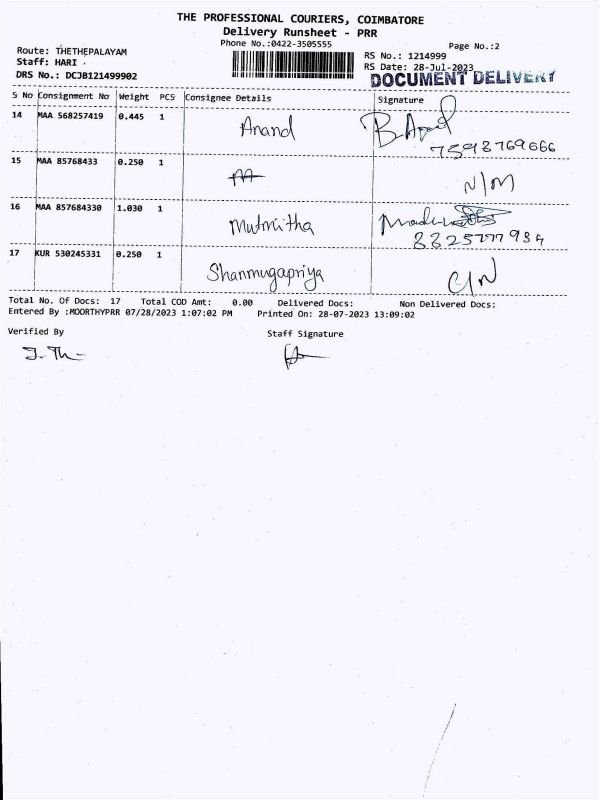 THE PROFESSIONAL COURIERS, COIMBATORE
Delivery Runsheet - PRR
Phone No.:0422-3505555
Page No.:2
Route: THETHEPALAYAM
RS No.: 1214999
Staff: HARI .
RS Date: 28-Jul-2023
DRS No.: DCJB121499902
DOCUMENT DELIVERY
S No Consignment No Weight PCS Consignee Details Signature
14 MAA 568257419 0.445 1 Anand
7593769666
15 MAA 85768433 0.250 1 N/M
16 MAA 857684330 1.030 1
17 KUR 530245331 0.250 1 Shanmugapriya
Total No. Of Docs: 17 Total COD Amt: 0.00 Delivered Docs: Non Delivered Docs:
Entered By :MOORTHYPRR 07/28/2023 1:07:02 PM Printed On: 28-07-2023 13:09:02
Verified By Staff Signature